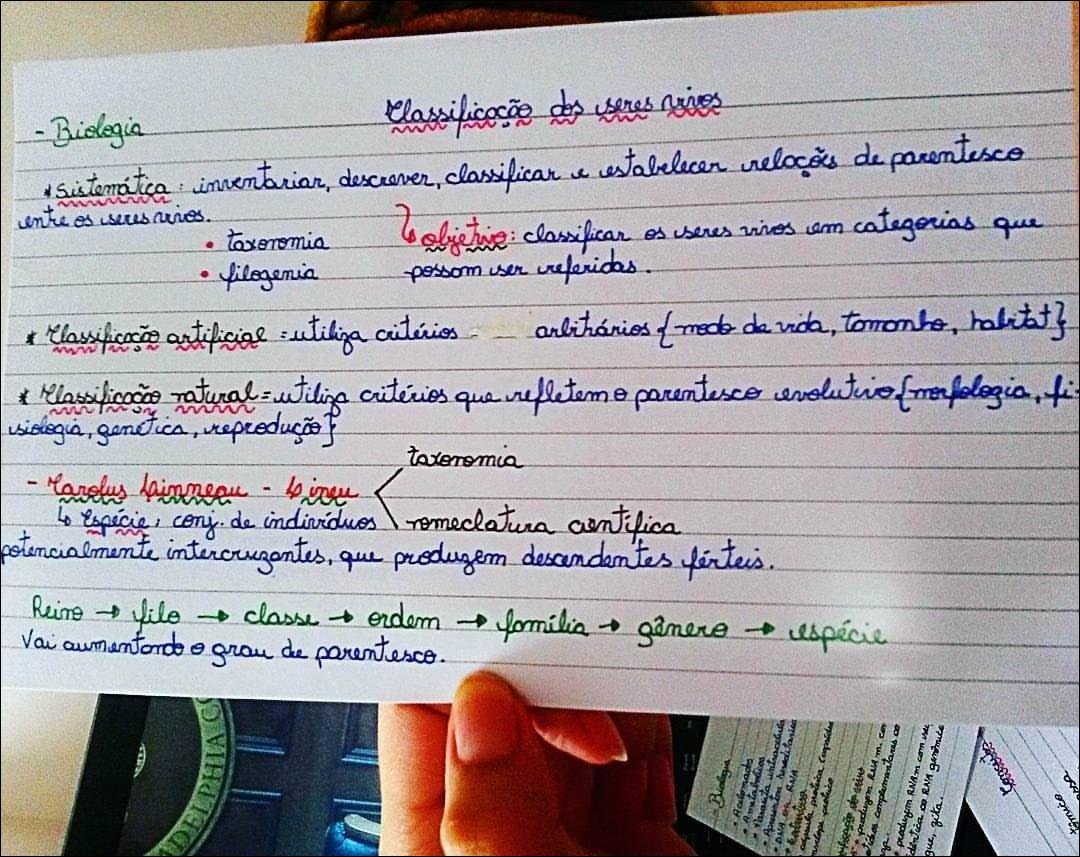 - Biologia
Classificação dos seres vivos
* Sistemática: inventariar, descrever, classificar e estabelecer relações de parentesco
entre os seres vivos.
• taxonomia
• filogenia
↳ objetivo: classificar os seres vivos em categorias que
possam ser referidas.
* Classificação artificial = utiliza critérios arbitrários {modo de vida, tamanho, habitat}
* Classificação natural = utiliza critérios que refletem o parentesco evolutivo {morfologia, fi-
siologia, genética, reprodução}
taxonomia
- Carolus Linneau - Lineu
↳ Espécie: conj. de indivíduos
nomeclatura científica
potencialmente intercruzantes, que produzem descendentes férteis.
Reino → filo → classe → ordem → família → gênero → espécie
Vai aumentando o grau de parentesco.
DELPHIA CO
Biologia